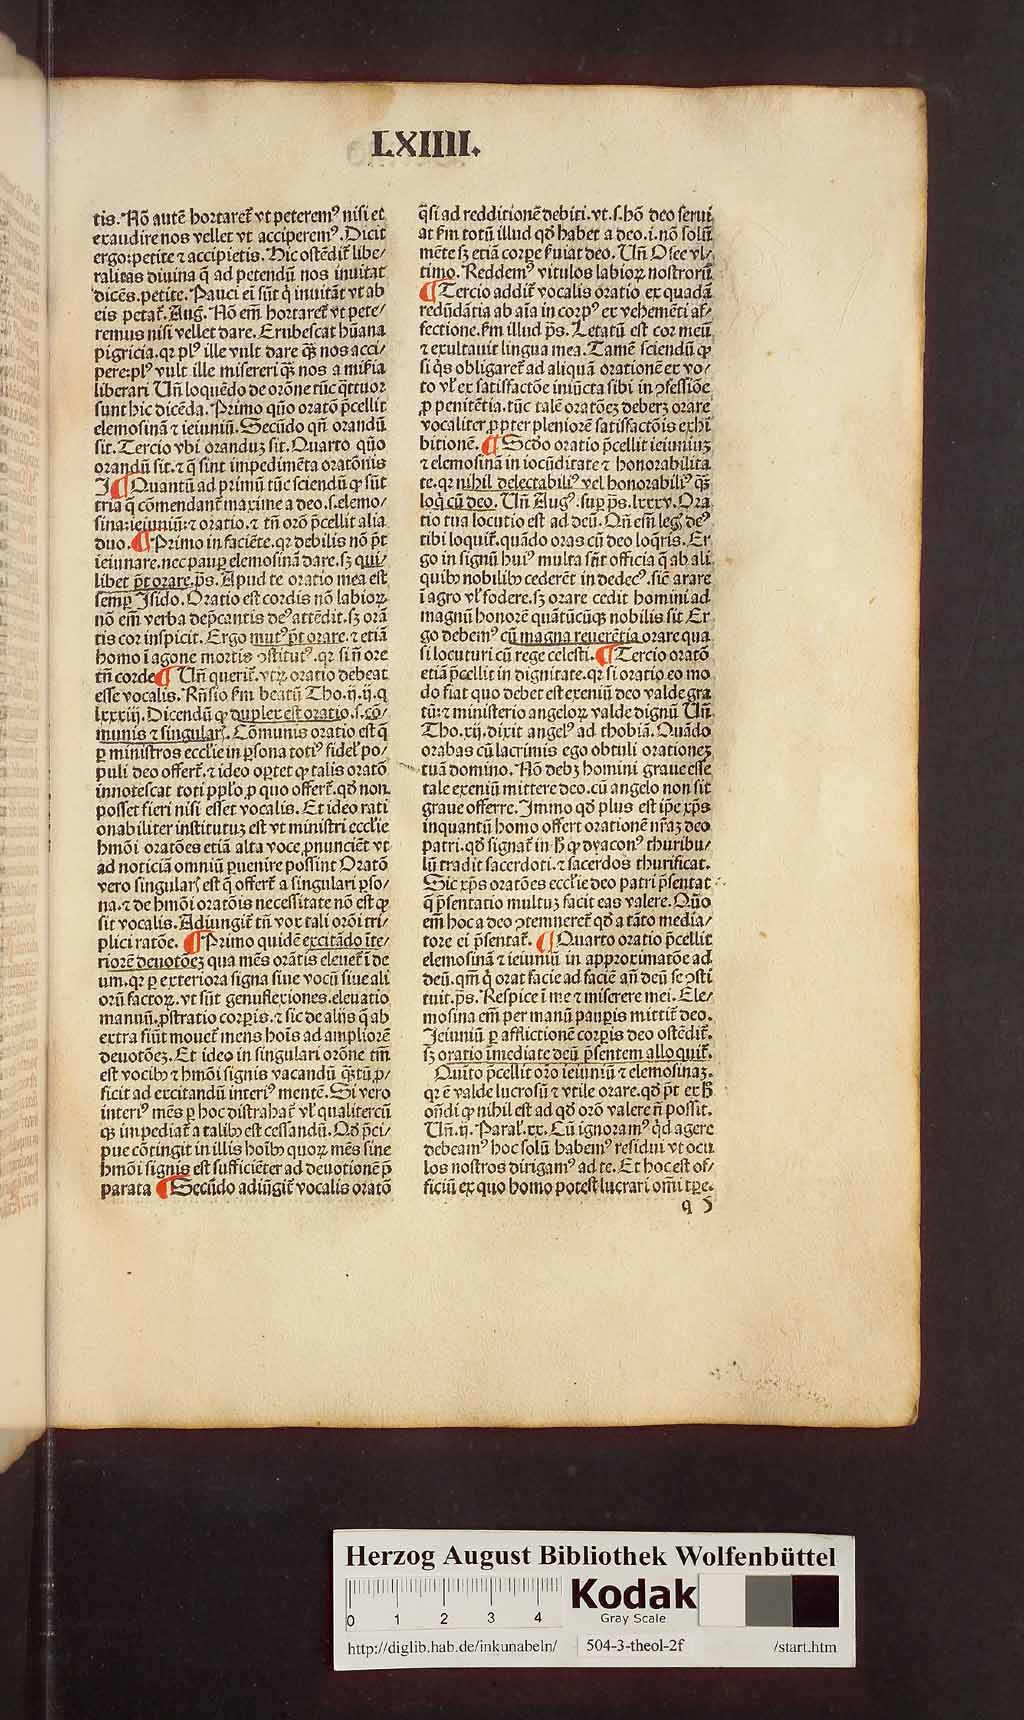 LXIIII.
tis. Nõ autẽ hortaret̃ vt peterem⁹ nisi et
exaudire nos vellet vt acciperem⁹. Dicit
ergo: petite ⁊ accipietis. Hic ostẽdit̃ libe/
ralitas diuina q̃ ad petendũ nos inuitat
dicẽs. petite. Pauci ei̇̃ sũt q̇ inuitãt vt ab
eis petat̃. Aug. Nõ em̃ hortaret̃ vt pete/
remus nisi vellet dare. Erubescat hũana
pigricia. qꝛ pl⁹ ille vult dare q̃ꝫ nos acci/
pere: pl⁹ vult ille misereri q̃ꝫ nos a mis̃ia
liberari Un̄ loquẽdo de orõne tũc q̃ttuor
sunt hic dicẽda. Primo quõ oratõ p̃cellit
elemosinã ⁊ ieiuniũ. Secũdo qñ orandũ
sit. Tercio vbi oranduꝫ sit. Quarto quõ
orandũ sit. ⁊ q̃ sint impedimẽta oratõnis
I ¶ Quantũ ad primũ tũc sciendũ ꝙ sũt
tria q̃ cõmendant̃ maxime a deo. s. elemo/
sina: ieiuniũ: ⁊ oratio. ⁊ tñ orõ p̃cellit alia
duo. ¶ Primo in faciẽte. qꝛ debilis nõ p̃t
ieiunare. nec paup̱ elemosinã dare. sꝫ qui/
libet p̃t orare. p̃s. Apud te oratio mea est
semp̱ Isido. Oratio est cordis nõ labioꝝ
nõ em̃ verba dep̃cantis de⁹ attẽdit. sꝫ orã
tis cor inspicit. Ergo mut⁹ p̃t orare. ⁊ etiã
homo ĩ agone mortis ꝯstitut⁹. qꝛ si ñ ore
tñ corde ¶ Un̄ querit̃. vtꝝ oratio debeat
esse vocalis. Rñsio ẜm beatũ Tho. ij. ij. q
lxxxiij. Dicendũ ꝙ duplex est oratio. s. cõ/
munis ⁊ singulaꝝ. Cõmunis oratio est q̃
ꝑ ministros eccl̃ie in ꝑsona toti⁹ fidel̃ po/
puli deo offert̃. ⁊ ideo oꝑtet ꝙ talis oratõ
innotescat toti pp̱lo, ꝓ quo offert̃. qđ non
posset fieri nisi esset vocalis. Et ideo rati
onabiliter institutuꝫ est vt ministri eccl̃ie
hmõi oratões etiã alta voce ꝓnunciẽt vt
ad noticiã omniũ ꝑuenire possint Oratõ
vero singulaꝝ est q̃ offert̃ a singulari ꝑso/
na. ⁊ de hmõi oratõis necessitate nõ est ꝙ
sit vocalis. Adiungit̃ tñ vox tali orõi tri/
plici ratõe. ¶ Primo quidẽ excitãdo ĩte/
riorẽ deuotõeꝫ qua mẽs orãtis eleuet̃ ĩ de
um. qꝛ ꝑ exteriora signa siue vocũ siue ali
orũ factoꝝ. vt sũt genuflexiones. eleuatio
manuũ. ꝓstratio corꝑis. ⁊ sic de alijs q̃ ab
extra fiũt mouet̃ mens hoĩs ad ampliorẽ
deuotõeꝫ. Et ideo in singulari orõne tm̃
est vocibꝰ ⁊ hmõi signis vacandũ q̃ꝫtũ ꝓ/
ficit ad excitandũ interi⁹ mentẽ. Si vero
interi⁹ mẽs ꝑ hoc distrahat̃ vl̃ qualitercũ
qꝫ impediat̃ a talibꝰ est cessandũ. Qđ p̃ci/
pue cõtingit in illis hoĩbꝰ quoꝝ mẽs sine
hmõi signis est sufficiẽter ad deuotionẽ p̃
parata ¶ Secũdo adiũgit̃ vocalis oratõ
q̃si ad redditionẽ debiti. vt. s. hõ deo serui
at ẜm totũ illud qđ habet a deo. i. nõ solũ
mẽte sꝫ etiã corꝑe ẜuiat deo. Un̄ Osee vl/
timo. Reddem⁹ vitulos labioꝝ nostrorũ
¶ Tercio addit̃ vocalis oratio ex quadã
redũdãtia ab aĩa in corp⁹ ex vehemẽti af/
fectione. ẜm illud p̃s. Letatũ est cor meũ
⁊ exultauit lingua mea. Tamẽ sciendũ ꝙ
si q̇s obligaret̃ ad aliquã orationẽ ex vo/
to vl̃ ex satisfactõe iniũcta sibi in ꝯfessiõe
ꝓ penitẽtia. tũc talẽ oratõeꝫ deberꝫ orare
vocaliter ꝓpter pleniorẽ satisfactõis exhi
bitionẽ. ¶ Scđo oratio p̃cellit ieiuniuꝫ
⁊ elemosinã in iocũditate ⁊ honorabilita
te. qꝛ nihil delectabili⁹ vel honorabili⁹ q̃ꝫ
loq̇ cũ deo. Un̄ Aug⁹. suꝑ p̃s. lxxxv. Ora
tio tua locutio est ad deũ. Qñ em̃ leg̃ de⁹
tibi loquit̃. quãdo oras cũ deo loq̃ris. Er
go in signũ hui⁹ multa sũt officia q̃ ab ali
quibꝰ nobilibꝰ cederẽt in dedec⁹. sic̃ arare
ĩ agro vl̃ fodere. sꝫ orare cedit homini ad
magnũ honorẽ quãtũcũqꝫ nobilis sit Er
go debem⁹ cũ magna reuerẽtia orare qua
si locuturi cũ rege celesti. ¶ Tercio oratõ
etiã p̃cellit in dignitate. qꝛ si oratio eo mo
do fiat quo debet est exeniũ deo valde gra
tũ: ⁊ ministerio angeloꝝ valde dignũ Un̄
Tho. xij. dixit angel⁹ ad thobiã. Quãdo
orabas cũ lacrimis ego obtuli orationeꝫ
tuã domino. Nõ debꝫ homini graue esse
tale exeniũ mittere deo. cũ angelo non sit
graue offerre. Immo qđ plus est ip̃e xp̃s
inquantũ homo offert orationẽ nr̃aꝫ deo
patri. qđ signat̃ in hͦ ꝙ dyacon⁹ thuribu/
lũ tradit sacerdoti. ⁊ sacerdos thurificat.
Sic xp̃s oratões eccl̃ie deo patri p̃sentat
q̃ p̃sentatio multuꝫ facit eas valere. Quõ
em̃ hoc a deo ꝯtemneret̃ qđ a tãto media/
tore ei p̃sentat̃. ¶ Quarto oratio p̃cellit
elemosinã ⁊ ieiuniũ in approximatõe ad
deũ. qm̃ q̇ orat facie ad faciẽ añ deũ se ꝯsti
tuit. p̃s. Respice ĩ me ⁊ miserere mei. Ele/
mosina em̃ per manũ pauꝑis mittit̃ deo.
Ieiuniũ ꝑ afflictionẽ corꝑis deo ostẽdit̃.
sꝫ oratio imediate deũ p̃sentem alloquit̃.
Quĩto p̃cellit orõ ieiuniũ ⁊ elemosinaꝫ.
qꝛ ẽ valde lucrosũ ⁊ vtile orare. qđ p̃t ex hͦ
oñdi ꝙ nihil est ad qđ orõ valere ñ possit.
Un̄. ij. Paral̃. xx. Cũ ignoram⁹ q̇d agere
debeam⁹ hoc solũ habem⁹ residui vt ocu
los nostros dirigam⁹ ad te. Et hoc est of/
ficiũ ex quo homo potest lucrari om̃i tꝑe.
q 5
Herzog August Bibliothek Wolfenbüttel
0 1 2 3 4
Kodak
Gray Scale
http://diglib.hab.de/inkunabeln/ 504-3-theol-2f /start.htm